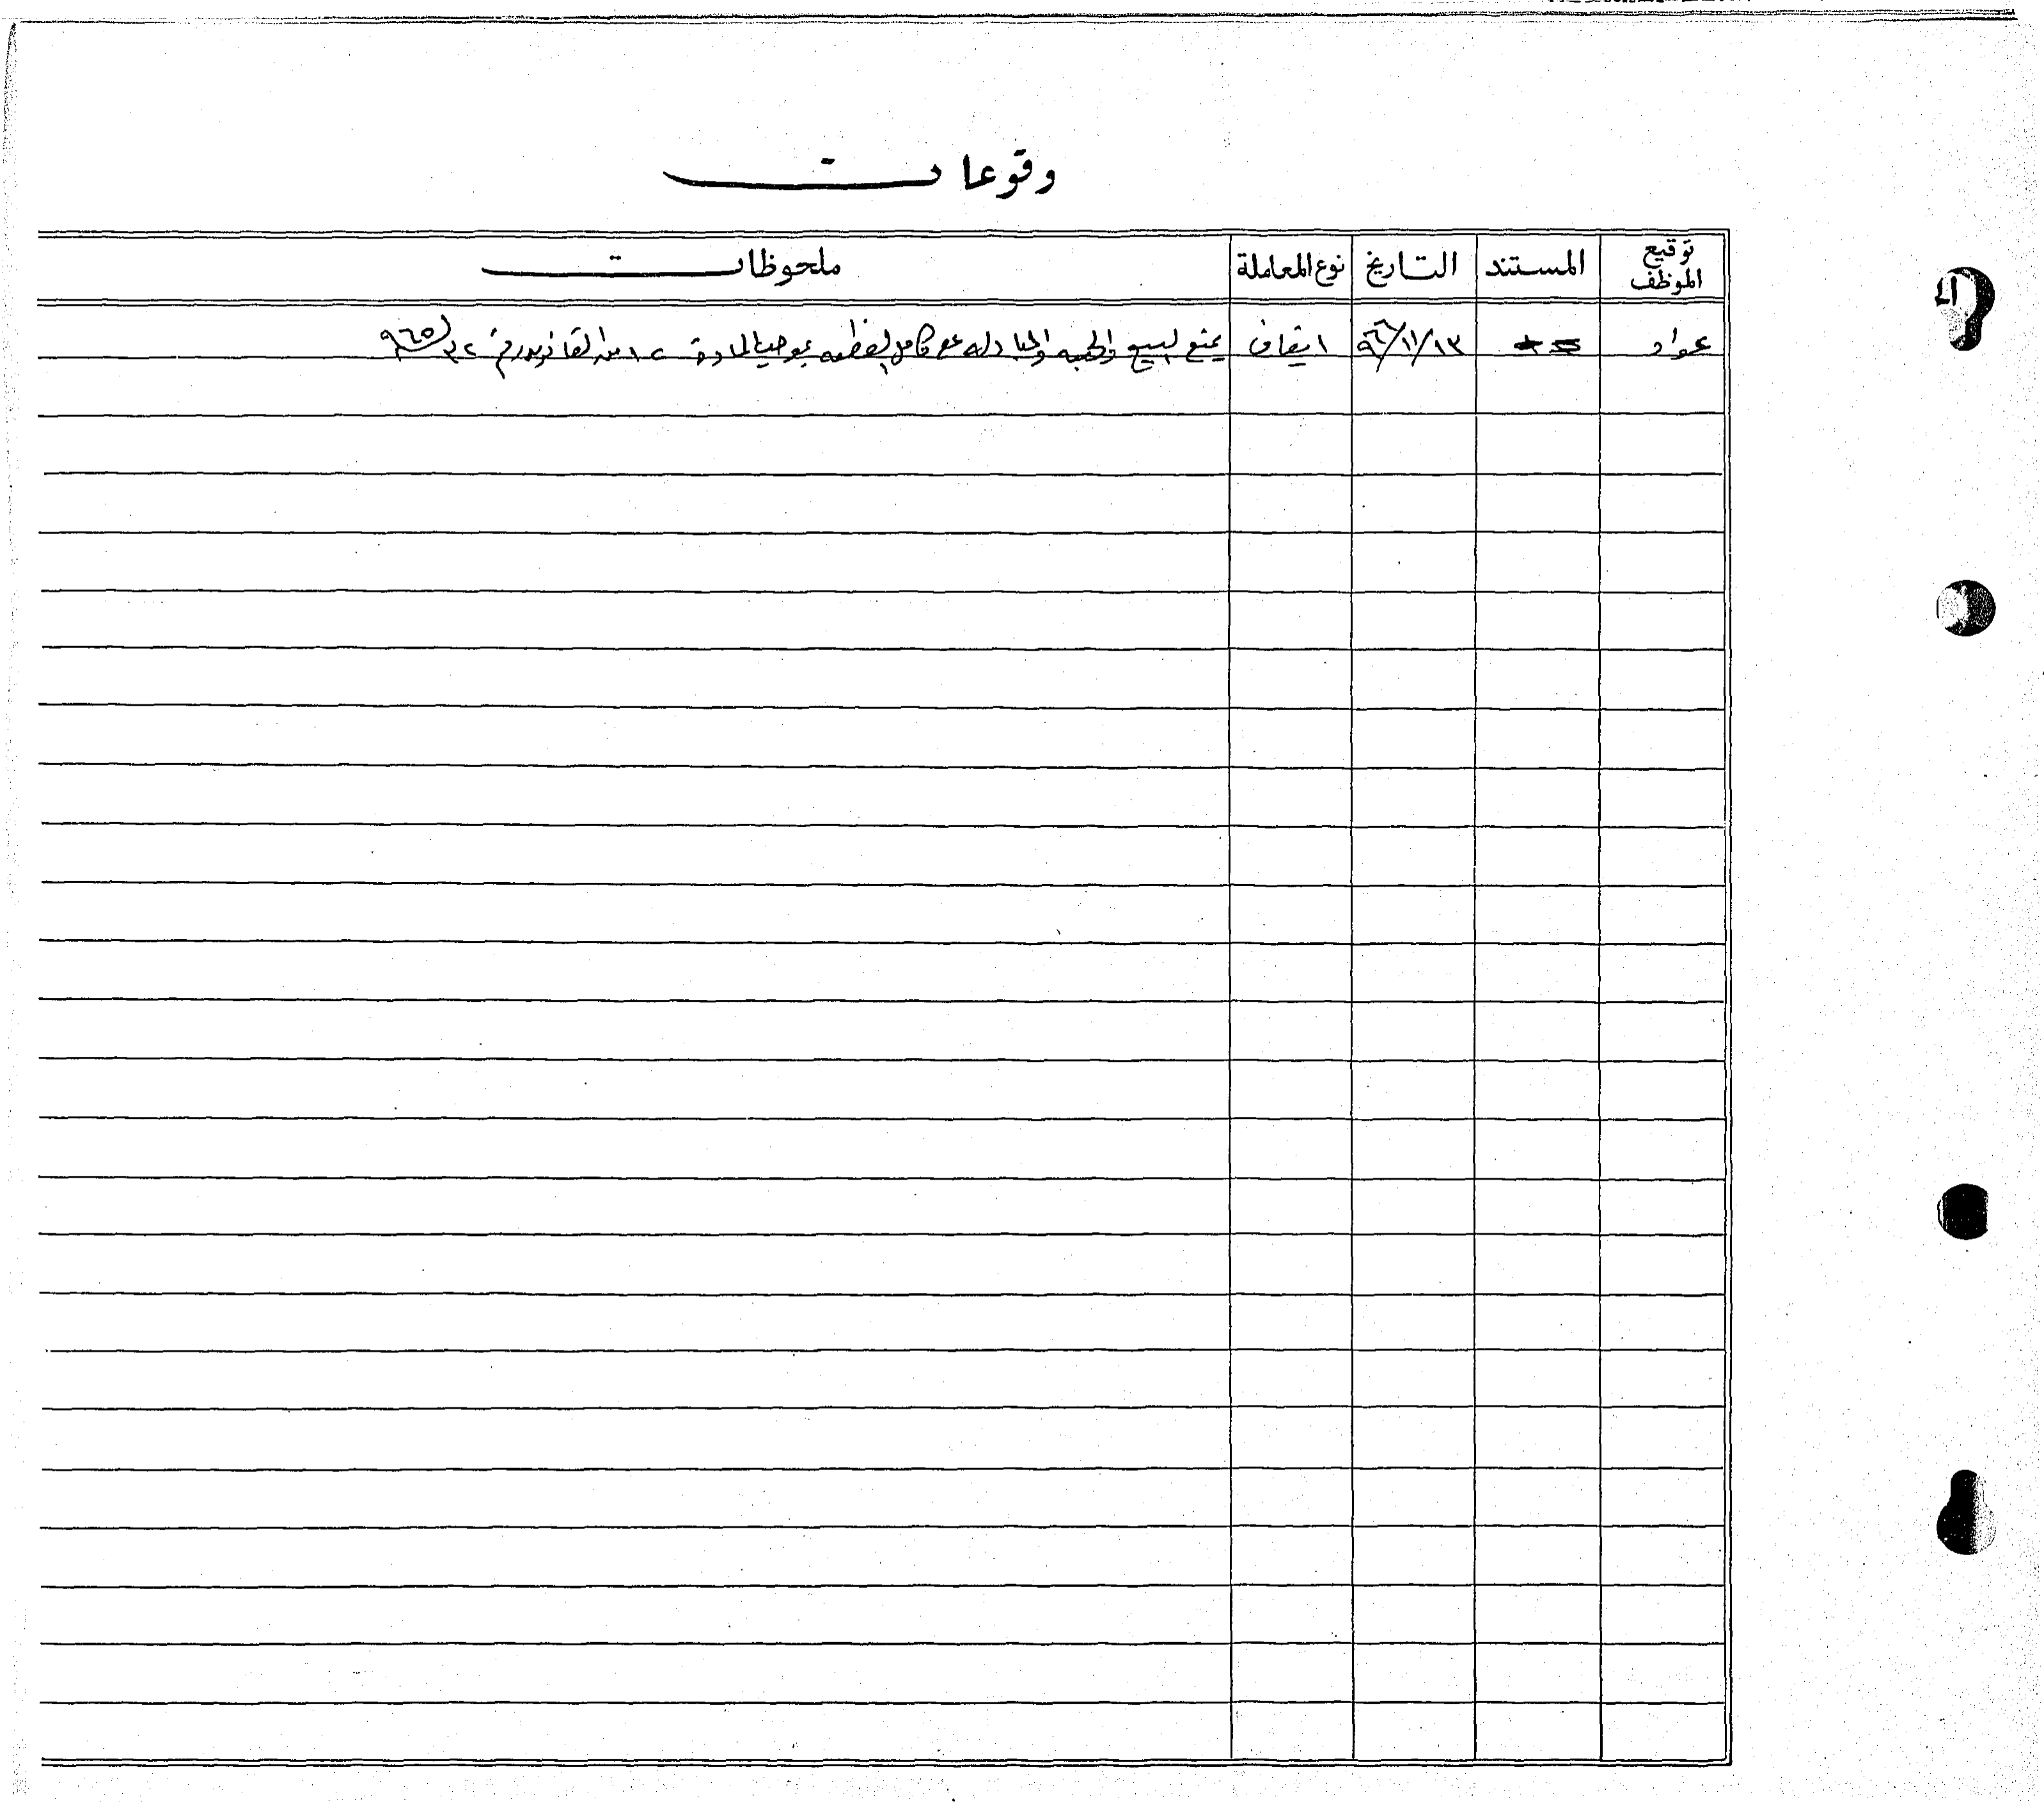 وقوعات
توقيع الموظف المستند التاريخ نوع المعاملة ملحوظات
عواد ١٣/١١/٩٦ ايقاف يمنع البيع والهبه والمبادله على كامل القطعه بموجب المادة ١٢ من القانون رقم ٣٢ ل ٩٦٥